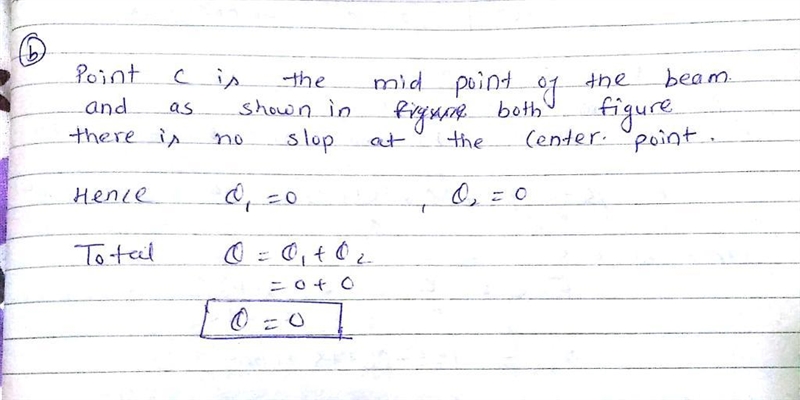 (b)
Point C is the mid point of the beam.
and as shown in both figure
there is no slop at the Center. point.
Hence θ₁ = 0 , θ₂ = 0
Total θ = θ₁ + θ₂
= 0 + 0
θ = 0